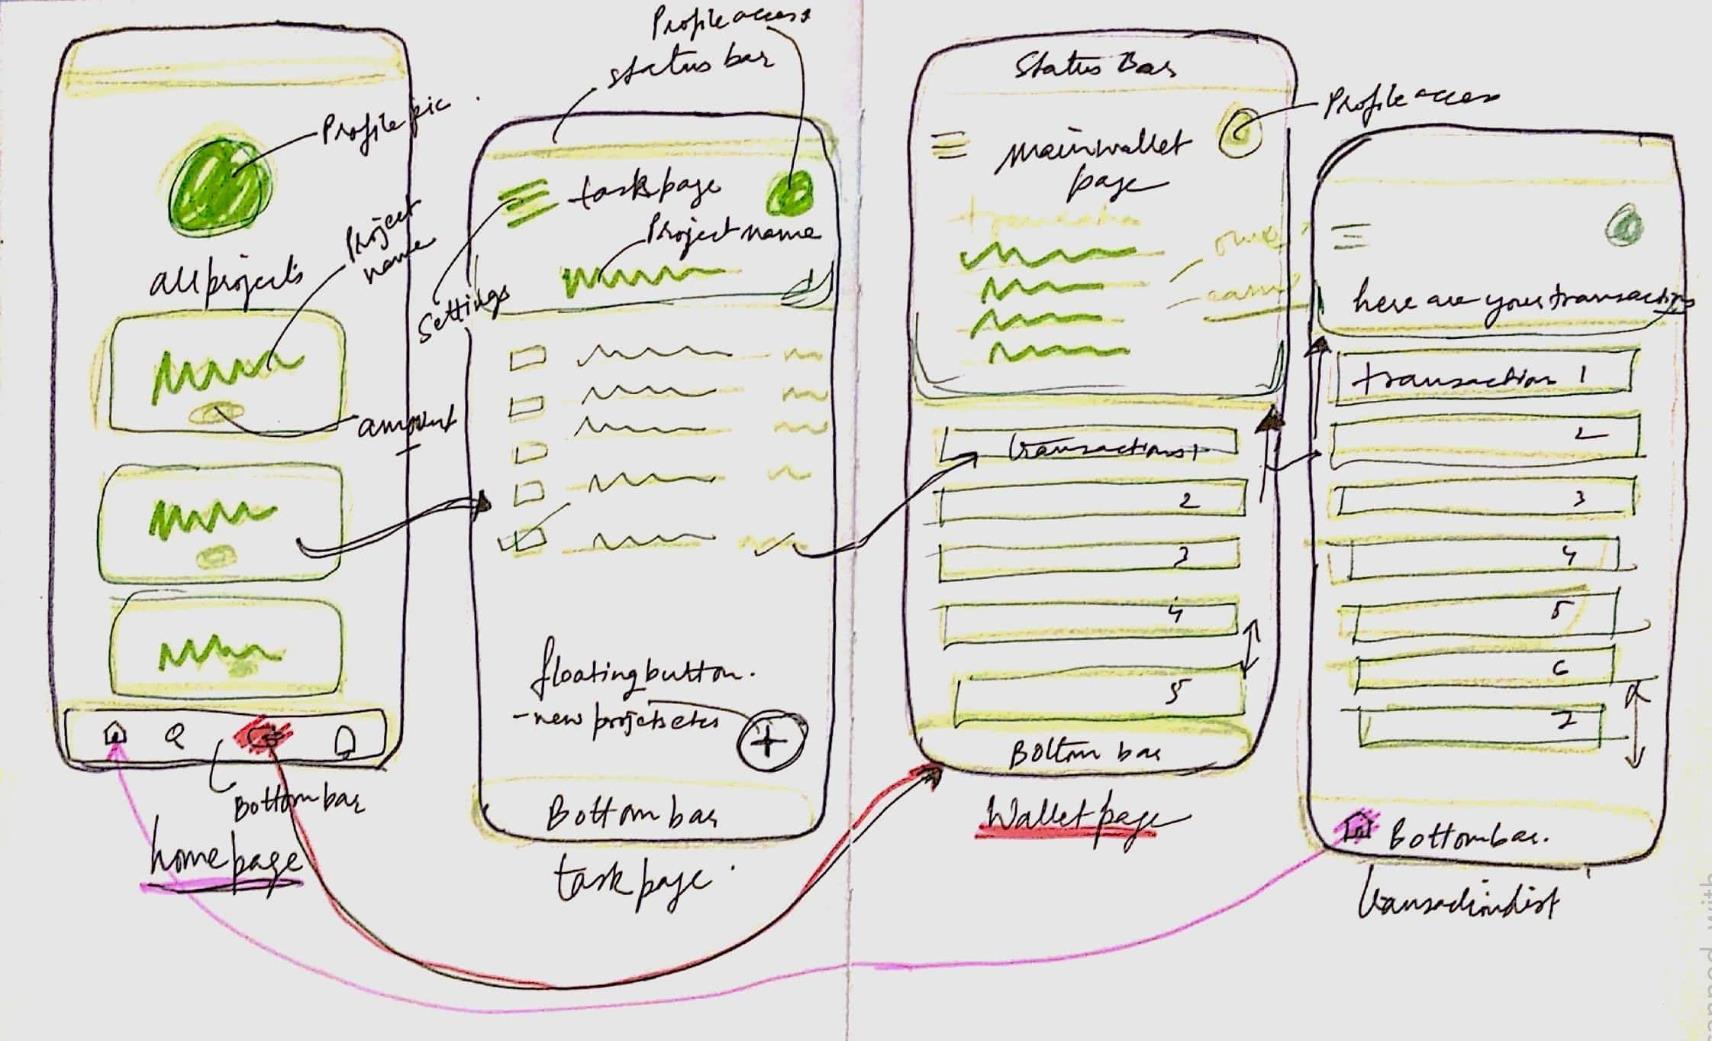 Profile pic
all projects
Project
name
amount
Bottom bar
home page
Profile access
status bar
task page
Project name
Settings
floating button.
- new projets etc
Bottom bar
task page.
Status Bar
Profile access
Main wallet
page
transactions 1
2
3
4
5
Bottom bar
Wallet page
here are your transactions
transaction 1
2
3
4
5
6
7
Bottom bar.
transaction list